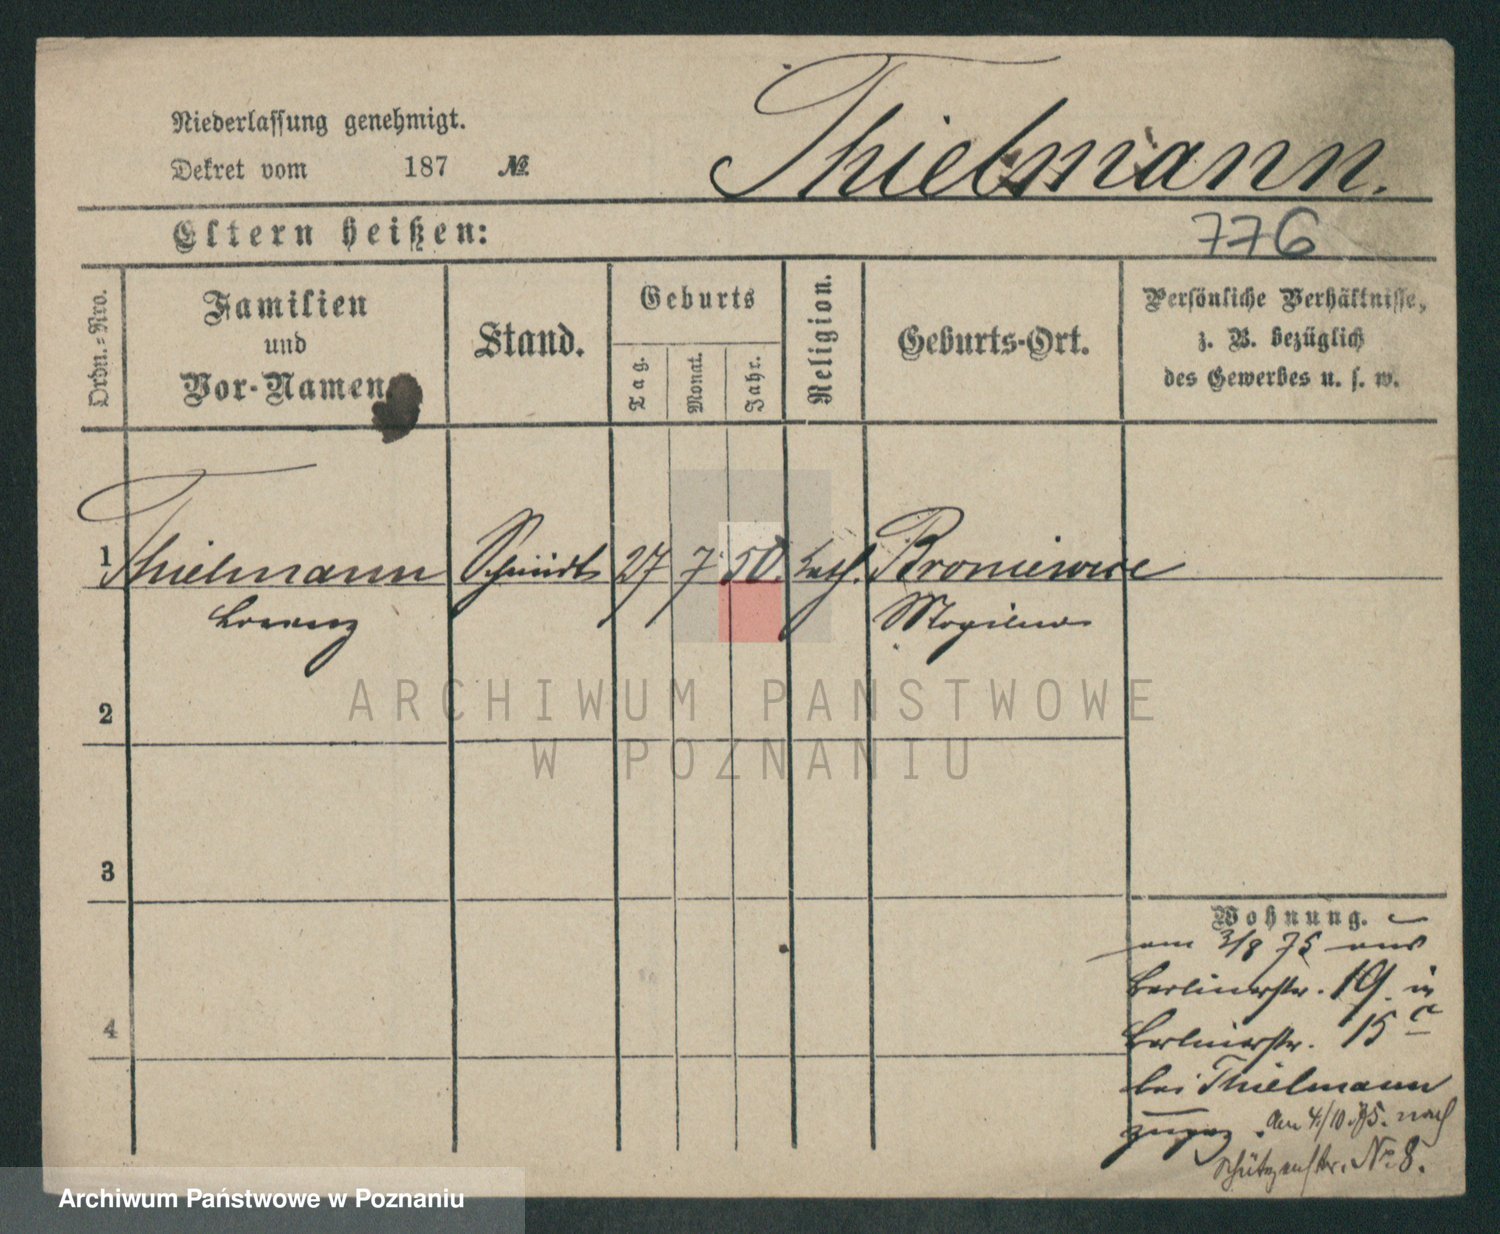 Niederlassung genehmigt.
Dekret vom 187 №
Thielmann.
Eltern heißen:
776
Ordn.-Nro.
Familien
und
Vor-Namen
Stand.
Geburts
Tag.
Monat.
Jahr.
Religion.
Geburts-Ort.
Persönliche Verhältnisse,
z. B. bezüglich
des Gewerbes u. s. w.
1 Thielmann Schmidt 27 7 50. kath. Broniewice
Lorenz Mogilno
ARCHIWUM PAŃSTWOWE
W POZNANIU
2
3
4
Wohnung.
am 3/8 75 aus
Berlinerstr. 19 in
Berlinerstr. 15 c
bei Thielmann
zugez. den 4/10.75. nach
Schützenstr. No 8.
Archiwum Państwowe w Poznaniu